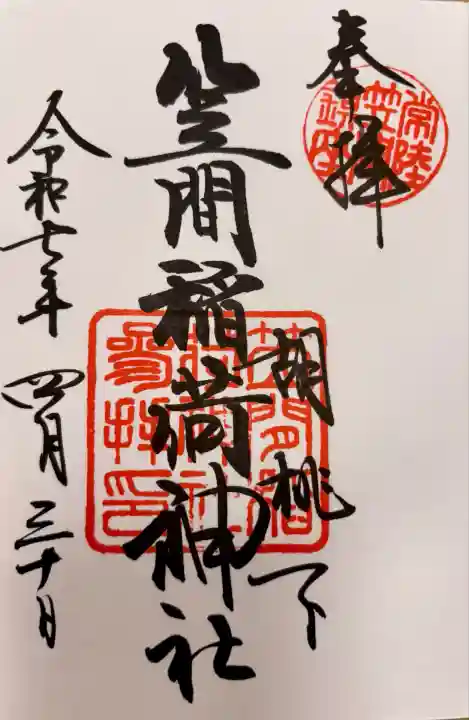 奉拝
常陸
笠間
鎮座
胡桃下
笠間稲荷神社
笠間稲
荷神社
参拝之印
令和七年 四月 三十日